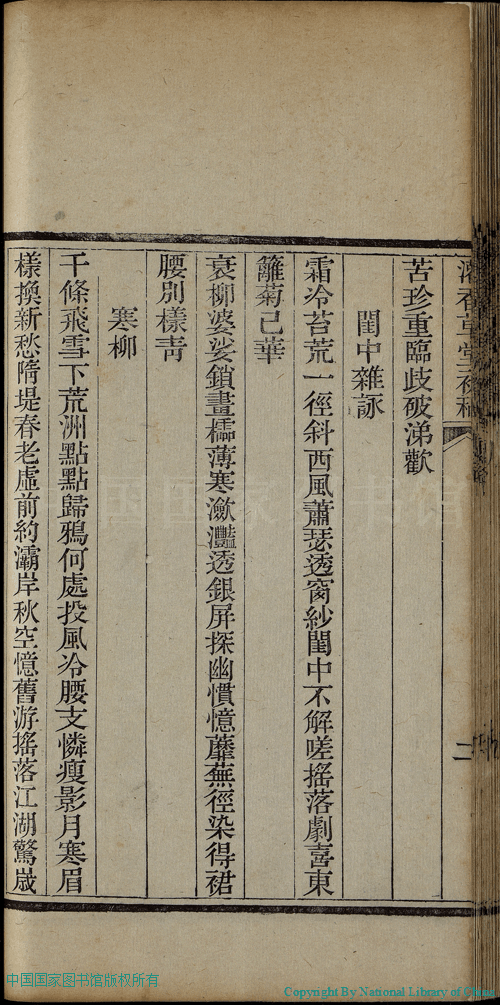 苦珍重臨歧破涕歡
閨中雜詠
霜冷苔荒一徑斜西風蕭瑟透窗紗閨中不解嗟搖落劇喜東
籬菊已華
衰柳婆娑鎖畫櫺薄寒瀲灩透銀屏探幽慣憶蘼蕪徑染得裙
腰別樣青
寒柳
千條飛雪下荒洲點點歸鴉何處投風冷腰支憐瘦影月寒眉
樣換新愁隋堤春老虛前約灞岸秋空憶舊游搖落江湖驚歲
二
中国国家图书馆版权所有
Copyright By National Library of China